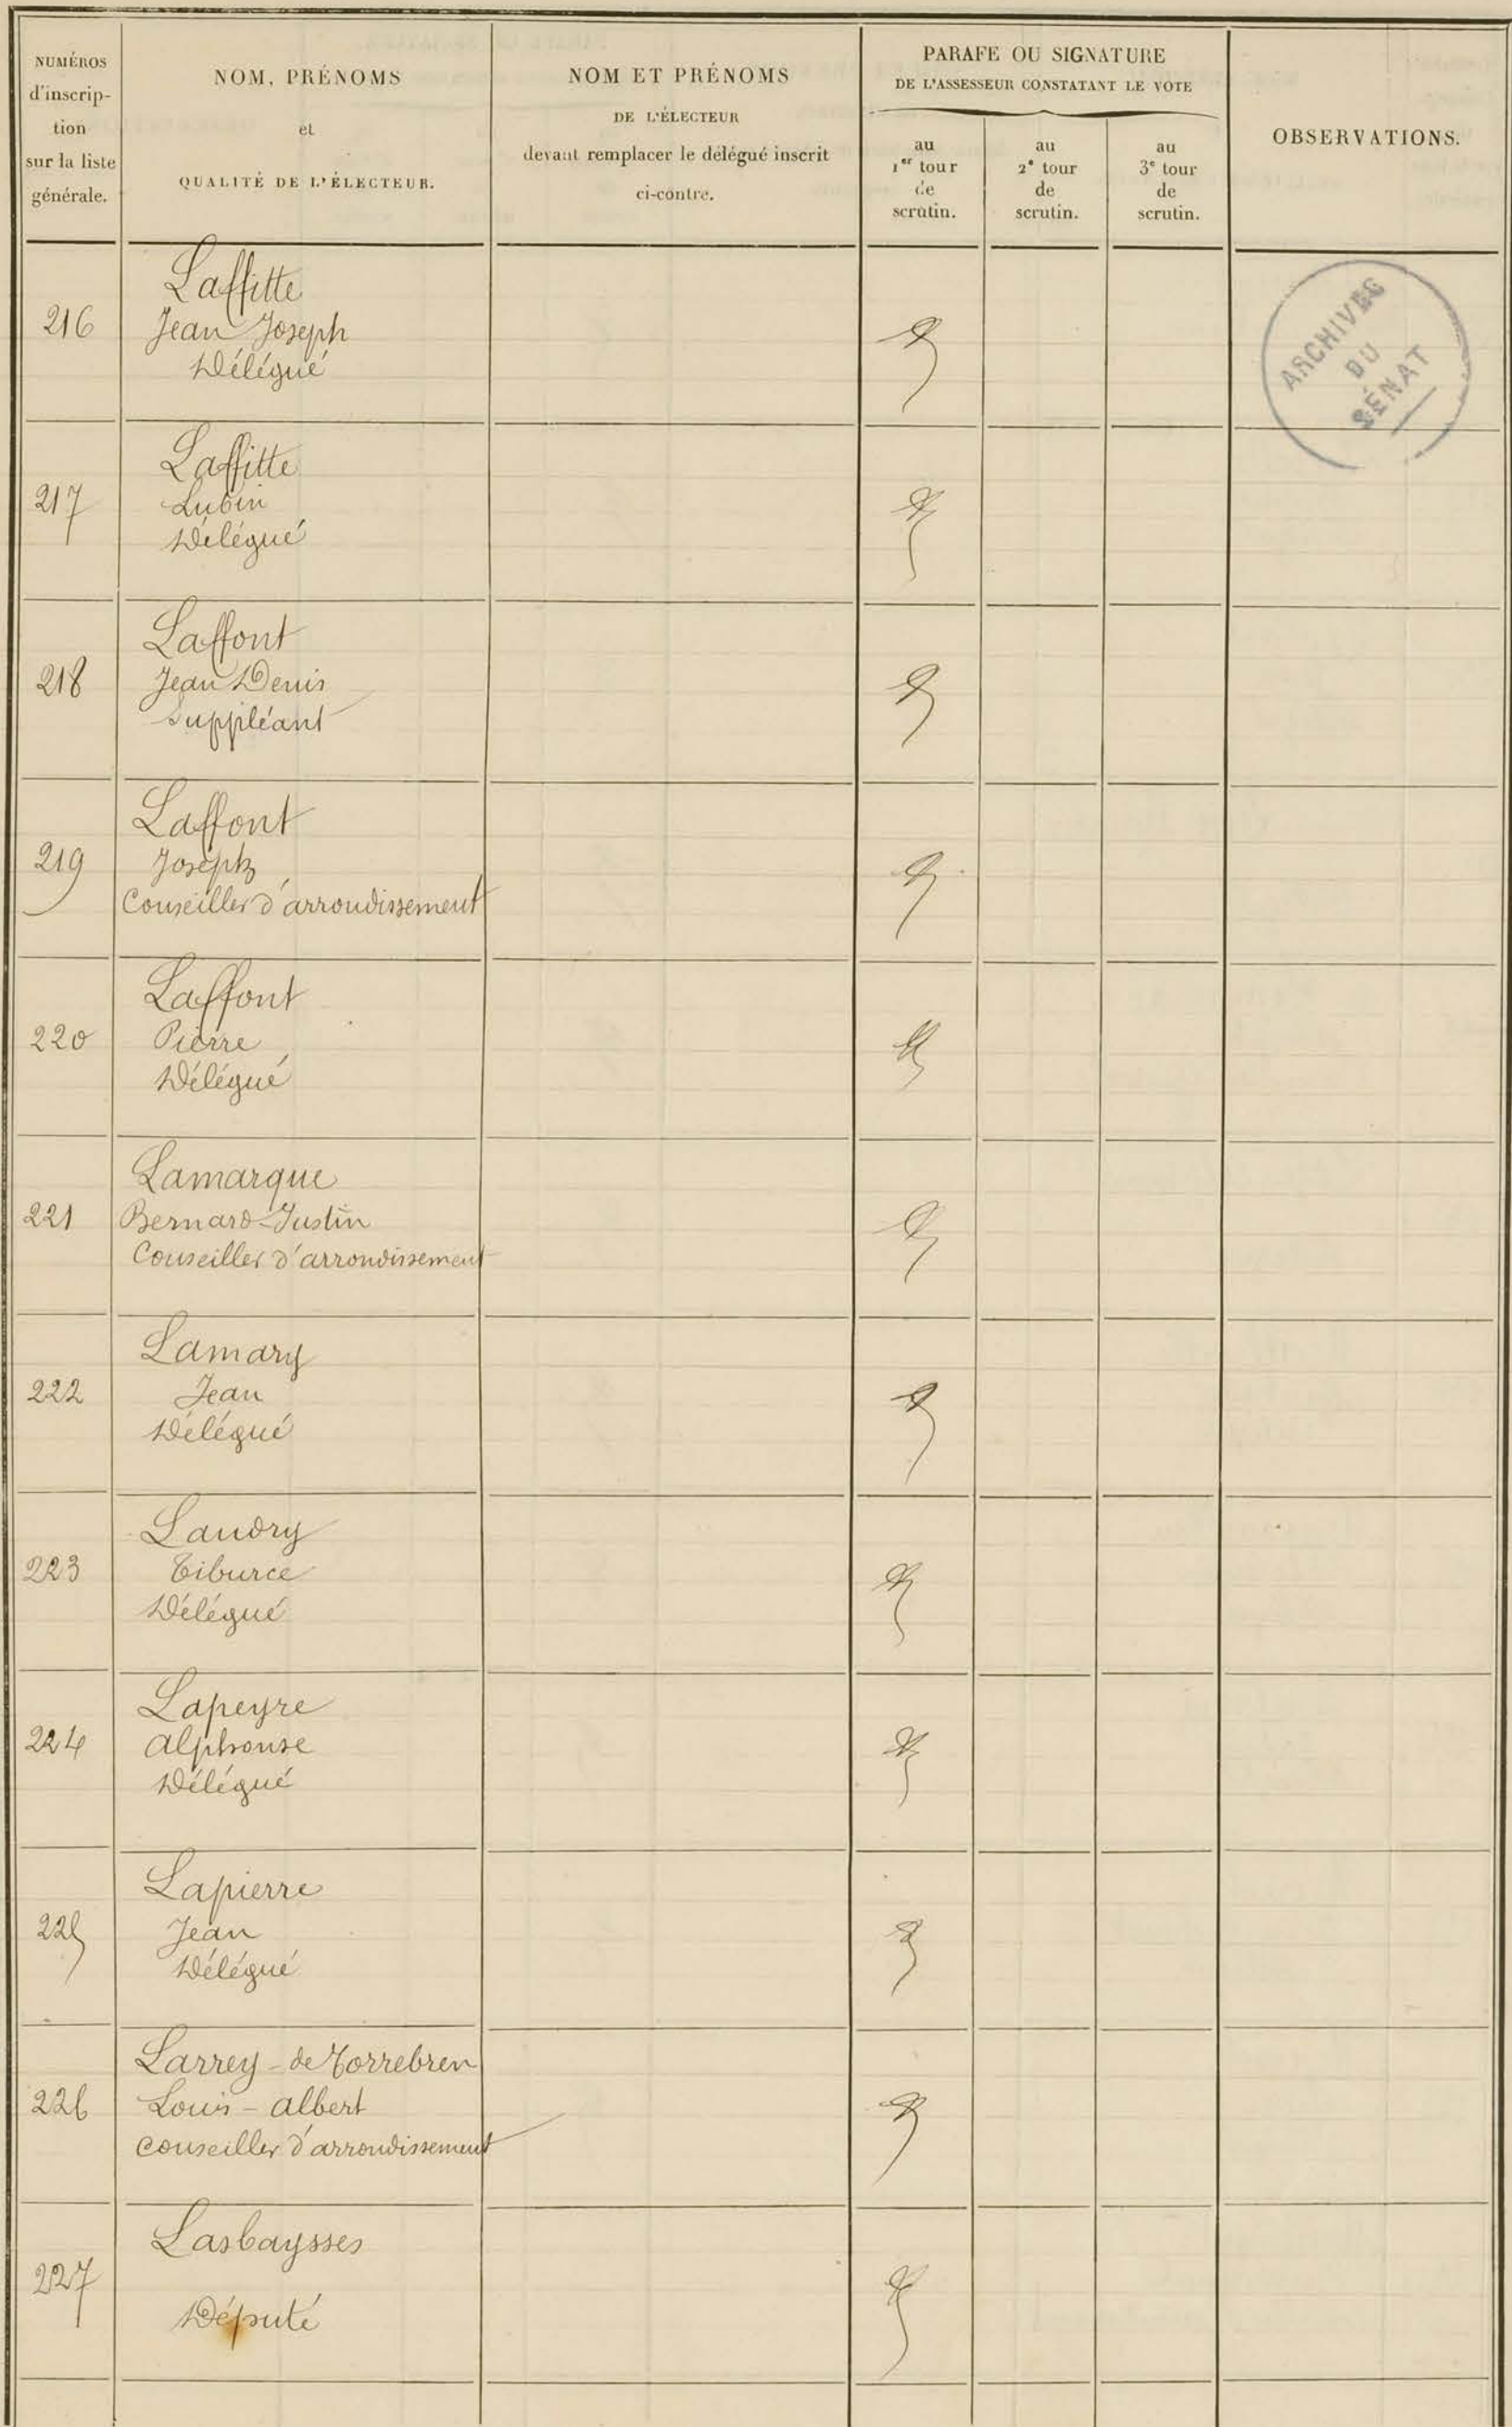 NUMÉROS
d'inscrip-
tion
sur la liste
générale.
NOM, PRÉNOMS
et
QUALITÉ DE L'ÉLECTEUR.
NOM ET PRÉNOMS
DE L'ÉLECTEUR
devant remplacer le délégué inscrit
ci-contre.
PARAFE OU SIGNATURE
DE L'ASSESSEUR CONSTATANT LE VOTE
au
1er tour
de
scrutin.
au
2e tour
de
scrutin.
au
3e tour
de
scrutin.
OBSERVATIONS.
ARCHIVES
DU
SÉNAT
216
Laffitte
Jean Joseph
Délégué
217
Laffitte
Lubin
Délégué
218
Laffont
Jean Denis
Suppléant
219
Laffont
Joseph
Conseiller d'arrondissement
220
Laffont
Pierre
Délégué
221
Lamarque
Bernard-Justin
Conseiller d'arrondissement
222
Lamary
Jean
Délégué
223
Landry
Tiburce
Délégué
224
Lapeyre
Alphonse
Délégué
225
Lapierre
Jean
Délégué
226
Larrey-de Torrebren
Louis-Albert
Conseiller d'arrondissement
227
Lasbaysses
Député